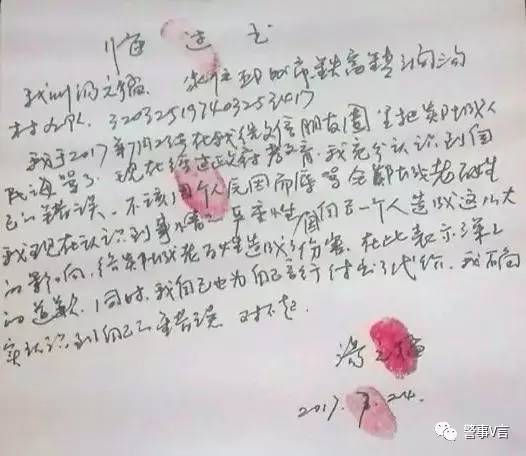 悔过书
我叫冯文   家住邳城市铁富镇沟
村   320325197403253017
我于2017年7月23号在我微信朋友圈里把炎邳城人
民侮骂了 现在经过政府教育，我充分认识到自
己的错误。不该因个人原因而辱骂全邳城老百姓
我现在认识到事 严重性 因自己一个人造成这么大
的影响，给 邳城老百姓造成了伤害，在此表示深深
的道歉，同时，我自己也为自己言行付出了代价，我确
实认识到自己的错误 对不起
冯
2017.7.24.
警事V言